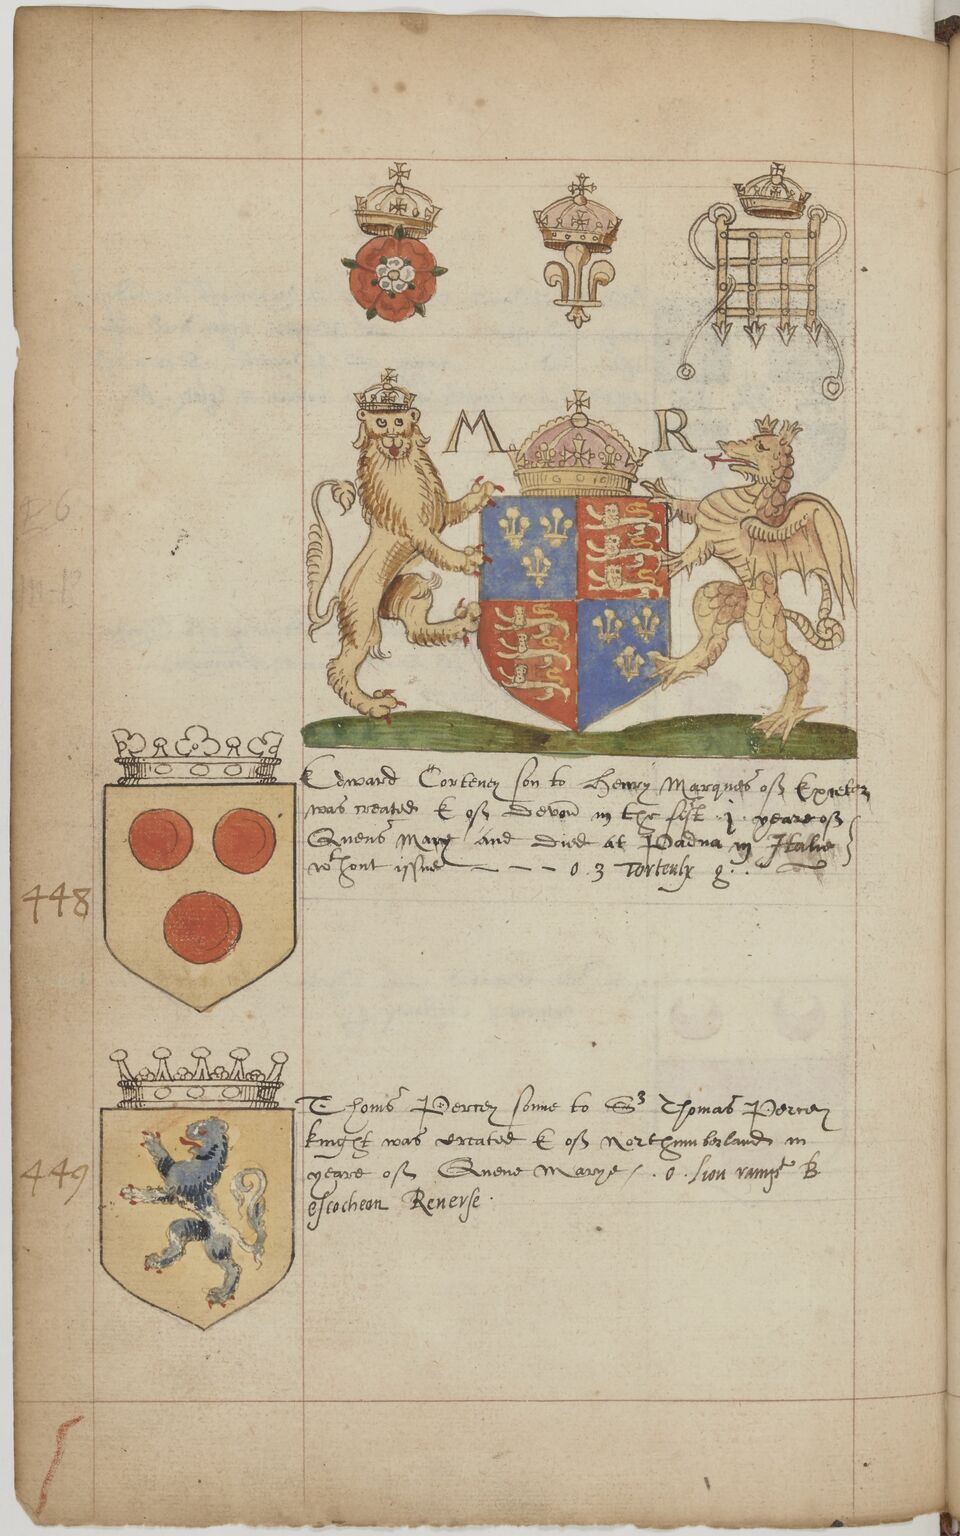 M R
Edward Corteney son to Henry Marques off Exceter
was created E off Devon in the first .j. yeare off
Quene Mary and died at Padua in Italie
wthout issue — — — 0 . 3 Torteulx g . .
448
Thoms Percey sonne to Sr Thomas Percey
knight was created E off Northumberland in
yeare off Quene Marye . o . lion rampt B
escocheon Reverse .
449